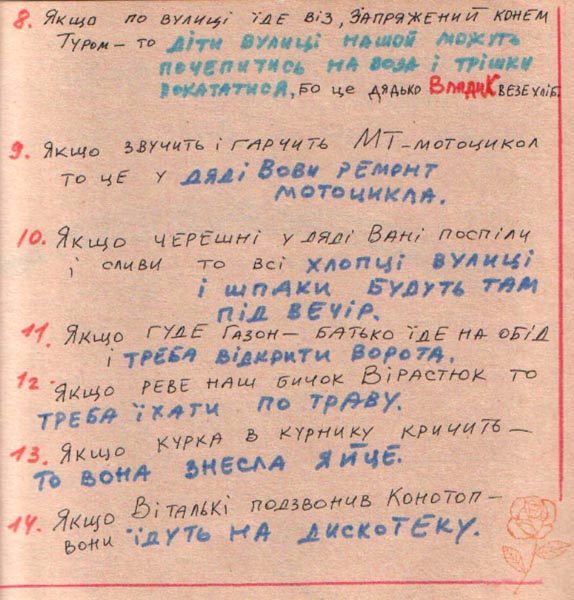 8. Якщо по вулиці їде віз, запряжений конем
Туром – то діти вулиці нашой можуть
почепитись на воза і трішки
покататися, бо це дядько Владик везе хліб
9. Якщо звучить і гарчить МТ-мотоцикол
то це у дяді Вови ремонт
мотоцикла.
10. Якщо черешні у дяді Вані поспіли
і сливи то всі хлопці вулиці
і шпаки будуть там
під вечір.
11. Якщо гуде Газон – батько їде на обід
і треба відкрити ворота.
12. Якщо реве наш бичок Вірастюк то
треба їхати по траву.
13. Якщо курка в курнику кричить –
то вона знесла яйце.
14. Якщо Віталькі подзвонив Конотоп –
вони їдуть на дискотеку.